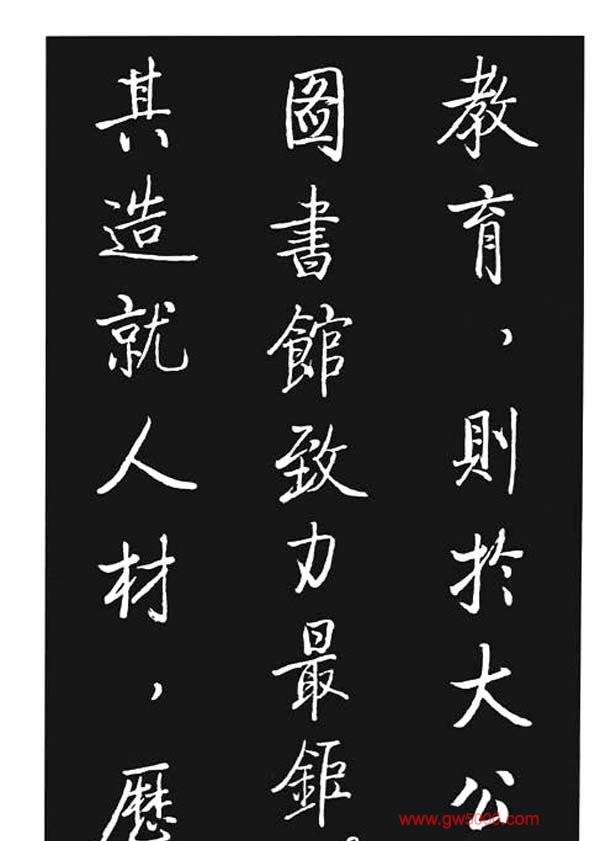 教育，則於大公
圖書館致力最鉅。
其造就人材，歷
www.gw5000.com